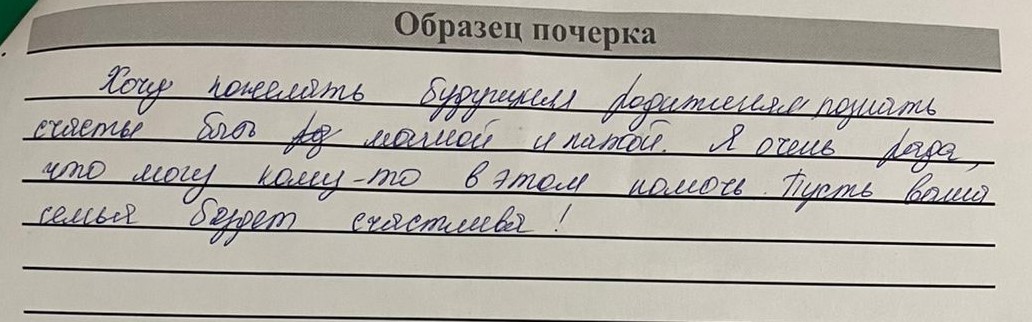 Образец почерка
Хочу пожелать будущим родителям познать
счастье быть мамой и папой. Я очень рада,
что могу кому-то в этом помочь. Пусть ваша
семья будет счастлива!